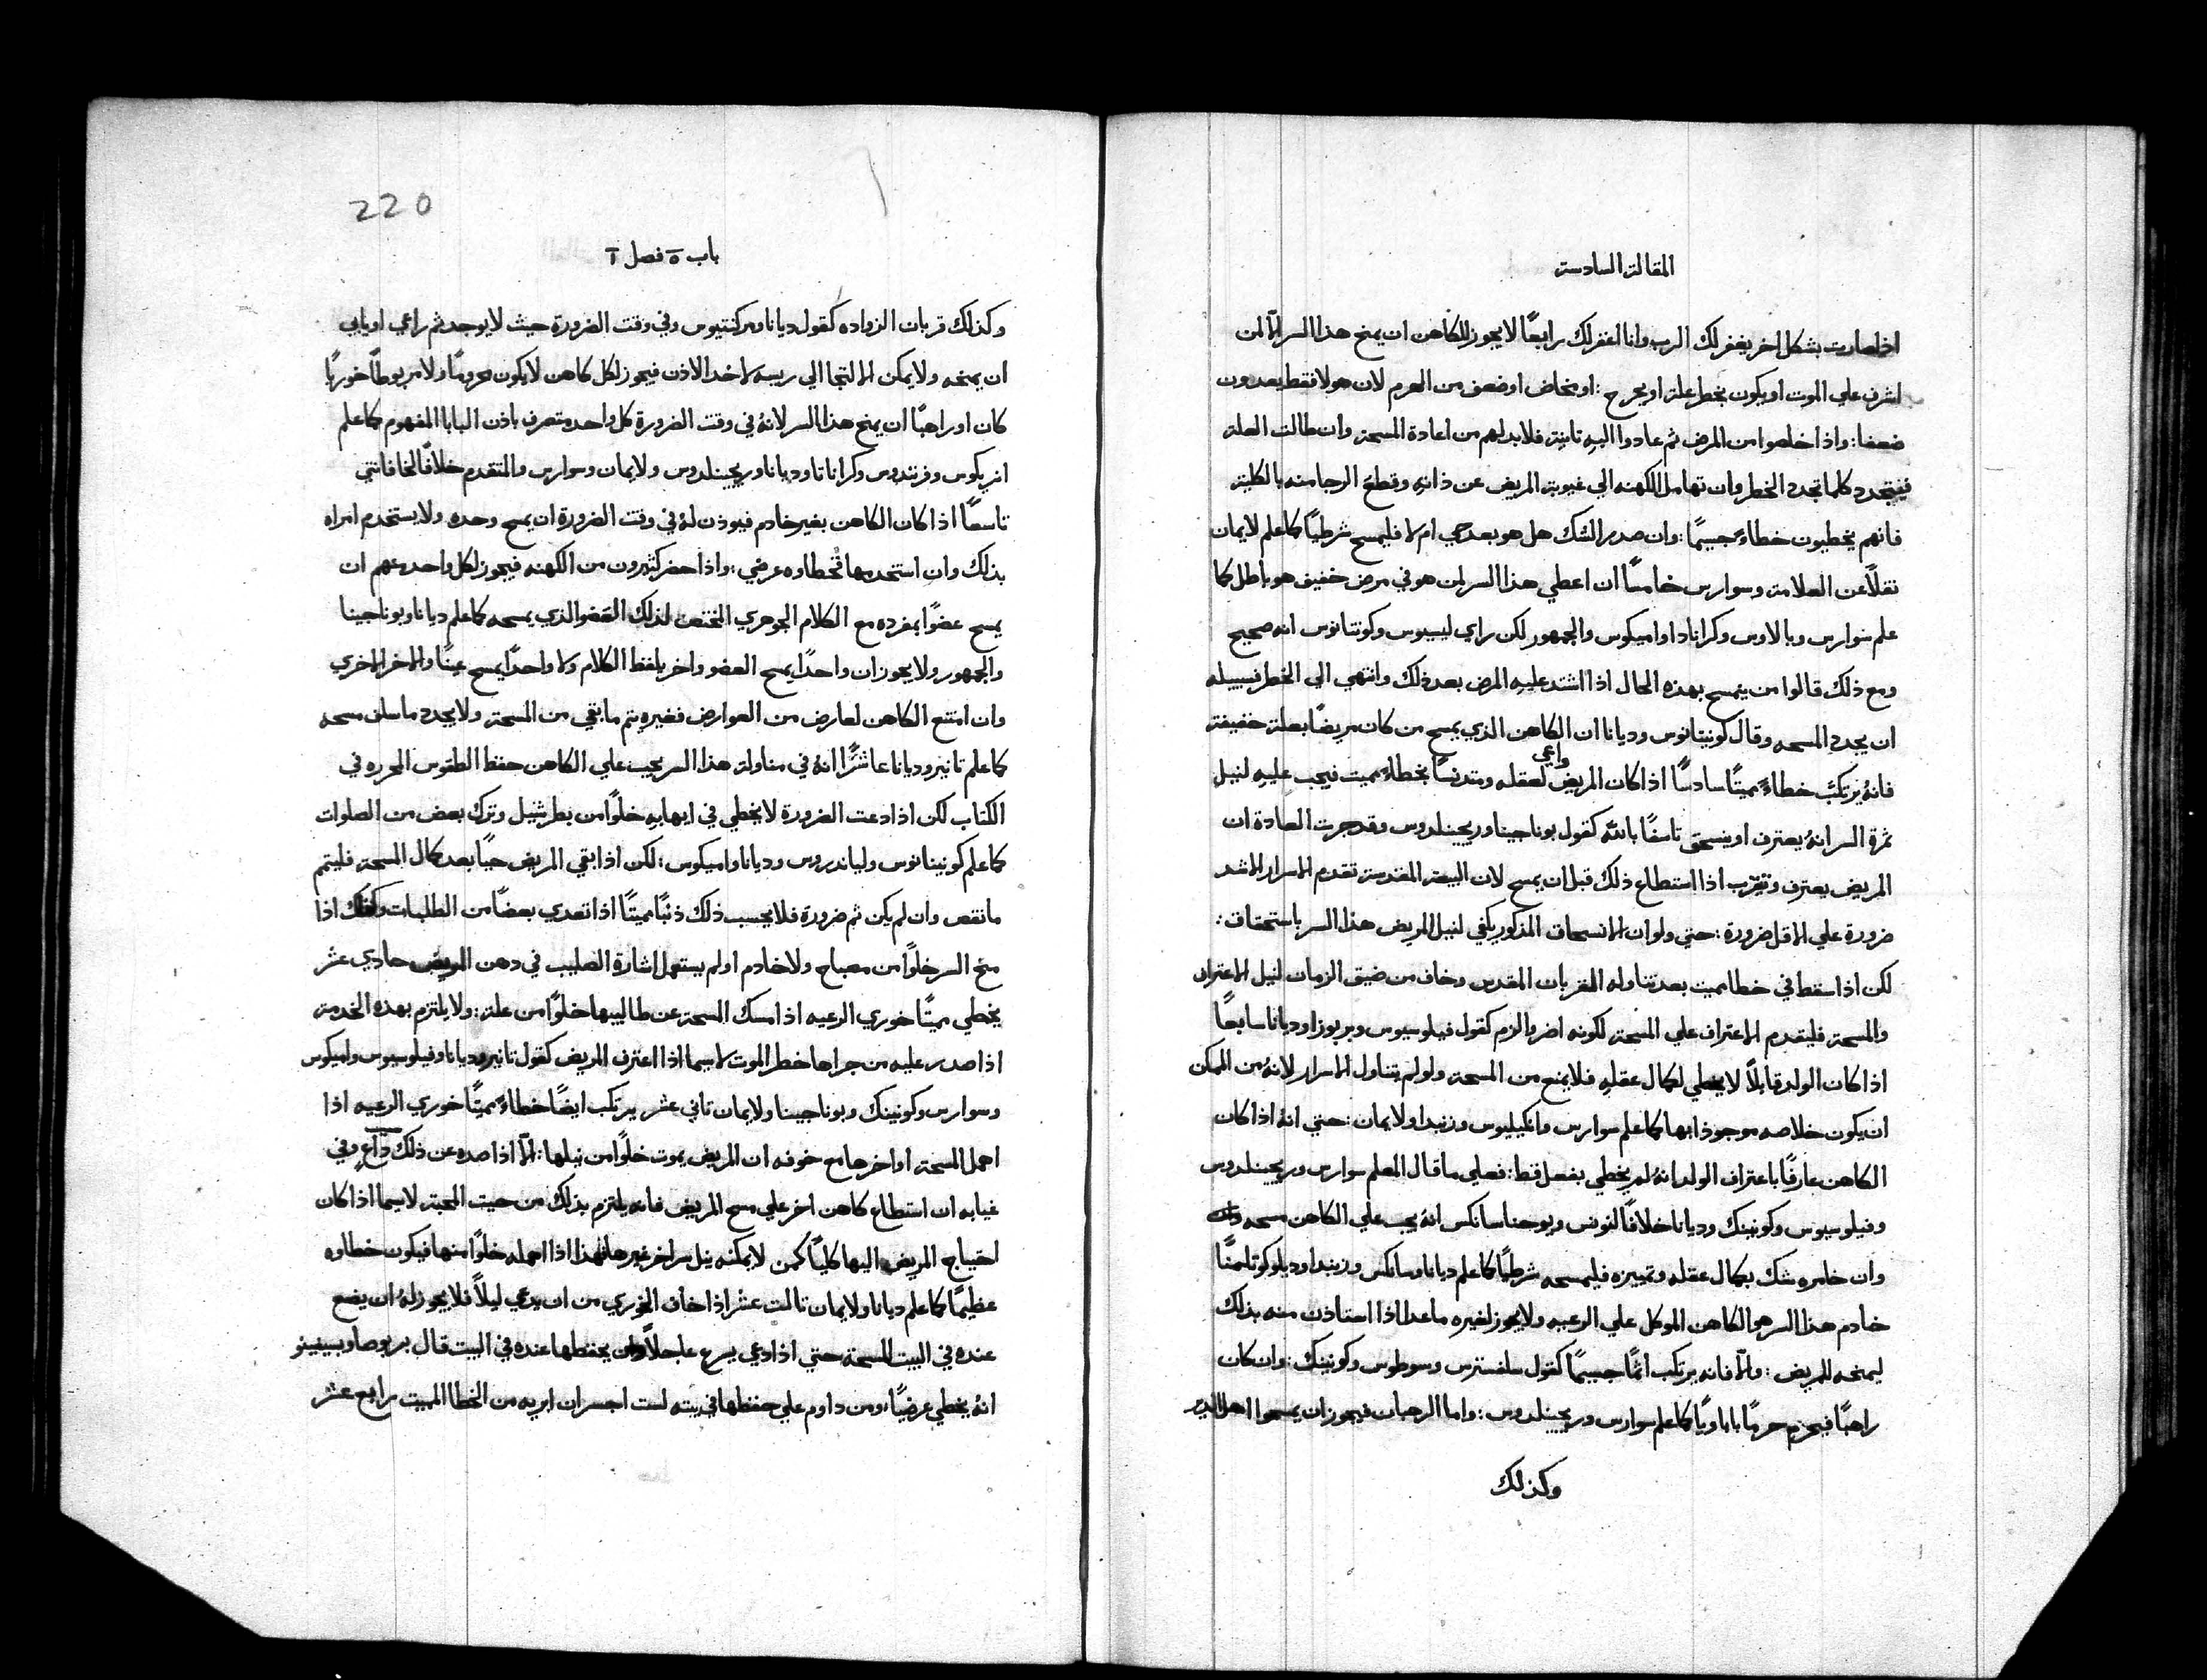 المقالة السادسة
اذا صارت بشكل اخر يغفر لك الرب وانا اغفر لك رابعًا لا يجوز للكاهن ان يمنح هذا السر الّا لمن
اشرف علي الموت او يكون بخطر علة او بجرح : او مخاض او ضعف من الهرم لان هولا فقط يعدون
ضعفا : واذا خلصوا من المرض ثم عادوا اليهِ ثانيةً فلا بد لهم من اعادة المسحة وان طالت العلة
فيتجدد كلما تجدد الخطر وان تهامل الكهنه الي غيوبة المريض عن ذاتهِ وقطع الرجا منه بالكلية
فانهم يخطيون خطاءً جسيمًا : وان صدر الشك هل هو بعد حي ام لا فليمسح شرطيًا كما علم لايمان
نقلًا عن العلامة وسوارس خامسًا ان اعطي هذا السر لمن هو في مرض خفيف هو باطل كما
علم سوارس وبالاوس وكراناد اواميكوس والجمهور لكن راي ليسيوس وكونتانوس انه صحيح
ومع ذلك قالوا من يتمسح بهذه الحال اذا اشتد عليهِ المرض بعد ذلك وانتهي الي الخطر فسبيله
ان يجدد المسحه وقال كونيتانوس وديانا ان الكاهن الذي يمسح من كان مريضًا بعلة خفيفة
فانهُ يرتكب خطاءً مميتًا سادسًا اذا كان المريض واعي لعقله ومتدنسًا بخطاءٍ مميت فيجب عليهِ لنيل
ثمرة السر انهُ يعترف او ينسحق تاسفًا بالله كقول بوناجينا وريجينلدوس وقد جرت العادة ان
المريض يعترف وتقرّب اذا استطاع ذلك قبل ان يمسح لان البيعة المقدسة تقدم الاسرار الاشد
ضرورة علي الاقل ضرورة : حتي ولو ان الانسحاق المذكور يكفي لنيل المريض هذا السر باستحقاق :
لكن اذا سقط في خطا مميت بعد تناوله القربان المقدس وخاف من ضيق الزمان لنيل الاعتراف
والمسحة فليقدم الاعتراف علي المسحة لكونه اضر والزم كقول فيلوسيوس وبربوزا وديانا سابعًا
اذا كان الولد قابلًا لا يخطي لكمال عقلهِ فلا يمنع من المسحة ولو لم يتناول الاسرار لانهُ من الممكن
ان يكون خلاصه موجوذا بها كما علم سوارس وانكيليوس وزنبدا ولايمان : حتي انهُ اذا كان
الكاهن عارفًا باعتراف الولد انهُ لم يخطي بفعل قط : فعلي ما قال المعلم سوارس وريجينلدوس
وفيلوسيوس وكونينك وديانا خلافًا لنونس ويوحنا سانكس انهُ يجب علي الكاهن مسحه
وان خامره شك بكمال عقله وتمييزه فليمسحه شرطيًا كما علم ديانا وسانكس وزنبدا ودبلوكو ثامنًا
خادم هذا السر هو الكاهن الموكل علي الرعيه ولا يجوز لغيره ماعدا اذا استاذن منه بذلك
ليمنحه للمريض : والّا فانه يرتكب اثمًا جسيمًا كقول سلفسترس وسوطوس وكونينك : وان كان
راهبًا فيحرم حرمًا باباويًا كما علم سوارس وريجينلدوس : واما الرهبان فيجوز ان يمسحوا اهل الدير
وكذلك
220
باب ٥ فصل ٢
وكذلك قربان الزواده كقول ديانا ومركنتيوس وفي وقت الضرورة حيث لا يوجد ثم راعي او يابي
ان يمنحه ولا يمكن الالتجا الي ريسه لاخد الاذن فيجوز لكل كاهن لا يكون محرومًا ولا مربوطًا خوريًا
كان او راهبًا ان يمنح هذا السر لانهُ في وقت الضرورة كل واحد متصرف باذن البابا المفهوم كما علم
انريكوس وفرنندوس وكراناتا وديانا وريجينلدوس ولايمان وسوارس والمتقدم خلافًا لخافانتي
تاسعًا اذا كان الكاهن بغير خادم فيوذن لهُ في وقت الضرورة ان يمسح وحده ولا يستخدم امراه
بذلك وان استخدمها فخطاوه عرضي : واذا حضر كثيرون من الكهنه فيجوز لكل واحد منهم ان
يمسح عضوًا بمفرده مع الكلام الجوهري المختص لذلك العضو الذي يمسحه كما علم ديانا وبوناجينا
والجمهور ولا يجوز ان واحدًا يمسح العضو واخر يلفظ الكلام ولا واحدًا يمسح عينًا والاخر الاخري
وان امتنع الكاهن لعارض من العوارض فغيره يتم ما بقي من المسحة ولا يجدد ما سلف مسحه
كما علم تانير وديانا عاشرًا انهُ في مناولة هذا السر يجب علي الكاهن حفظ الطقوس المحرره في
الكتاب لكن اذا دعت الضرورة لا يخطي في ايهابهِ خلوًا من بطرشيل وترك بعض من الصلوات
كما علم كونينانوس ولياندروس وديانا واميكوس : لكن اذا بقي المريض حيًا بعد كمال المسحة فليتمم
ما نقص وان لم يكن ثم ضرورة فلا يحسب ذلك ذنبًا مميتًا اذا تعدي بعضًا من الطلبات وكذلك اذا
منح السر خلوًا من مصباح ولا خادم او لم يستعمل اشارة الصليب في دهن المريض حادي عشر
يخطي مميتًا خوري الرعيه اذا مسك المسحة عن طالبيها خلوًا من علة : ولا يلتزم بهذه الخدمة
اذا صدر عليه من جراها خطر الموت لا سيما اذا اعترف المريض كقول تانير وديانا وفيلوسيوس واميكوس
وسوارس وكونينك وبوناجينا ولايمان ثاني عشر يرتكب ايضًا خطاءً مميتًا خوري الرعيه اذا
اهمل المسحة او اخرها مع خوفه ان المريض يموت خلوًا من نيلها : الّا اذا صده عن ذلك داعٍ وفي
غيابه ان استطاع كاهن اخر علي مسح المريض فانه يلتزم بذلك من حيث المحبة لا سيما اذا كان
احتياج المريض اليها كليًا كمن لا يمكنه نيل سر اخر غيرها فهذا اذا اهمله خلوًا منها فيكون خطاوه
عظيمًا كما علم ديانا ولايمان ثالث عشر اذا خاف الخوري من ان يدعي ليلًا فلا يجوز لهُ ان يضع
عنده في البيت المسحة حتي اذا دعي يسرع عاجلًا وان يحفظها عنده في البيت قال بربوصا وبسينينو
انهُ يخطي عرضيًا ومن داوم علي حفظها في بيته لست اجسر ان ابريه من الخطا المميت رابع عشر